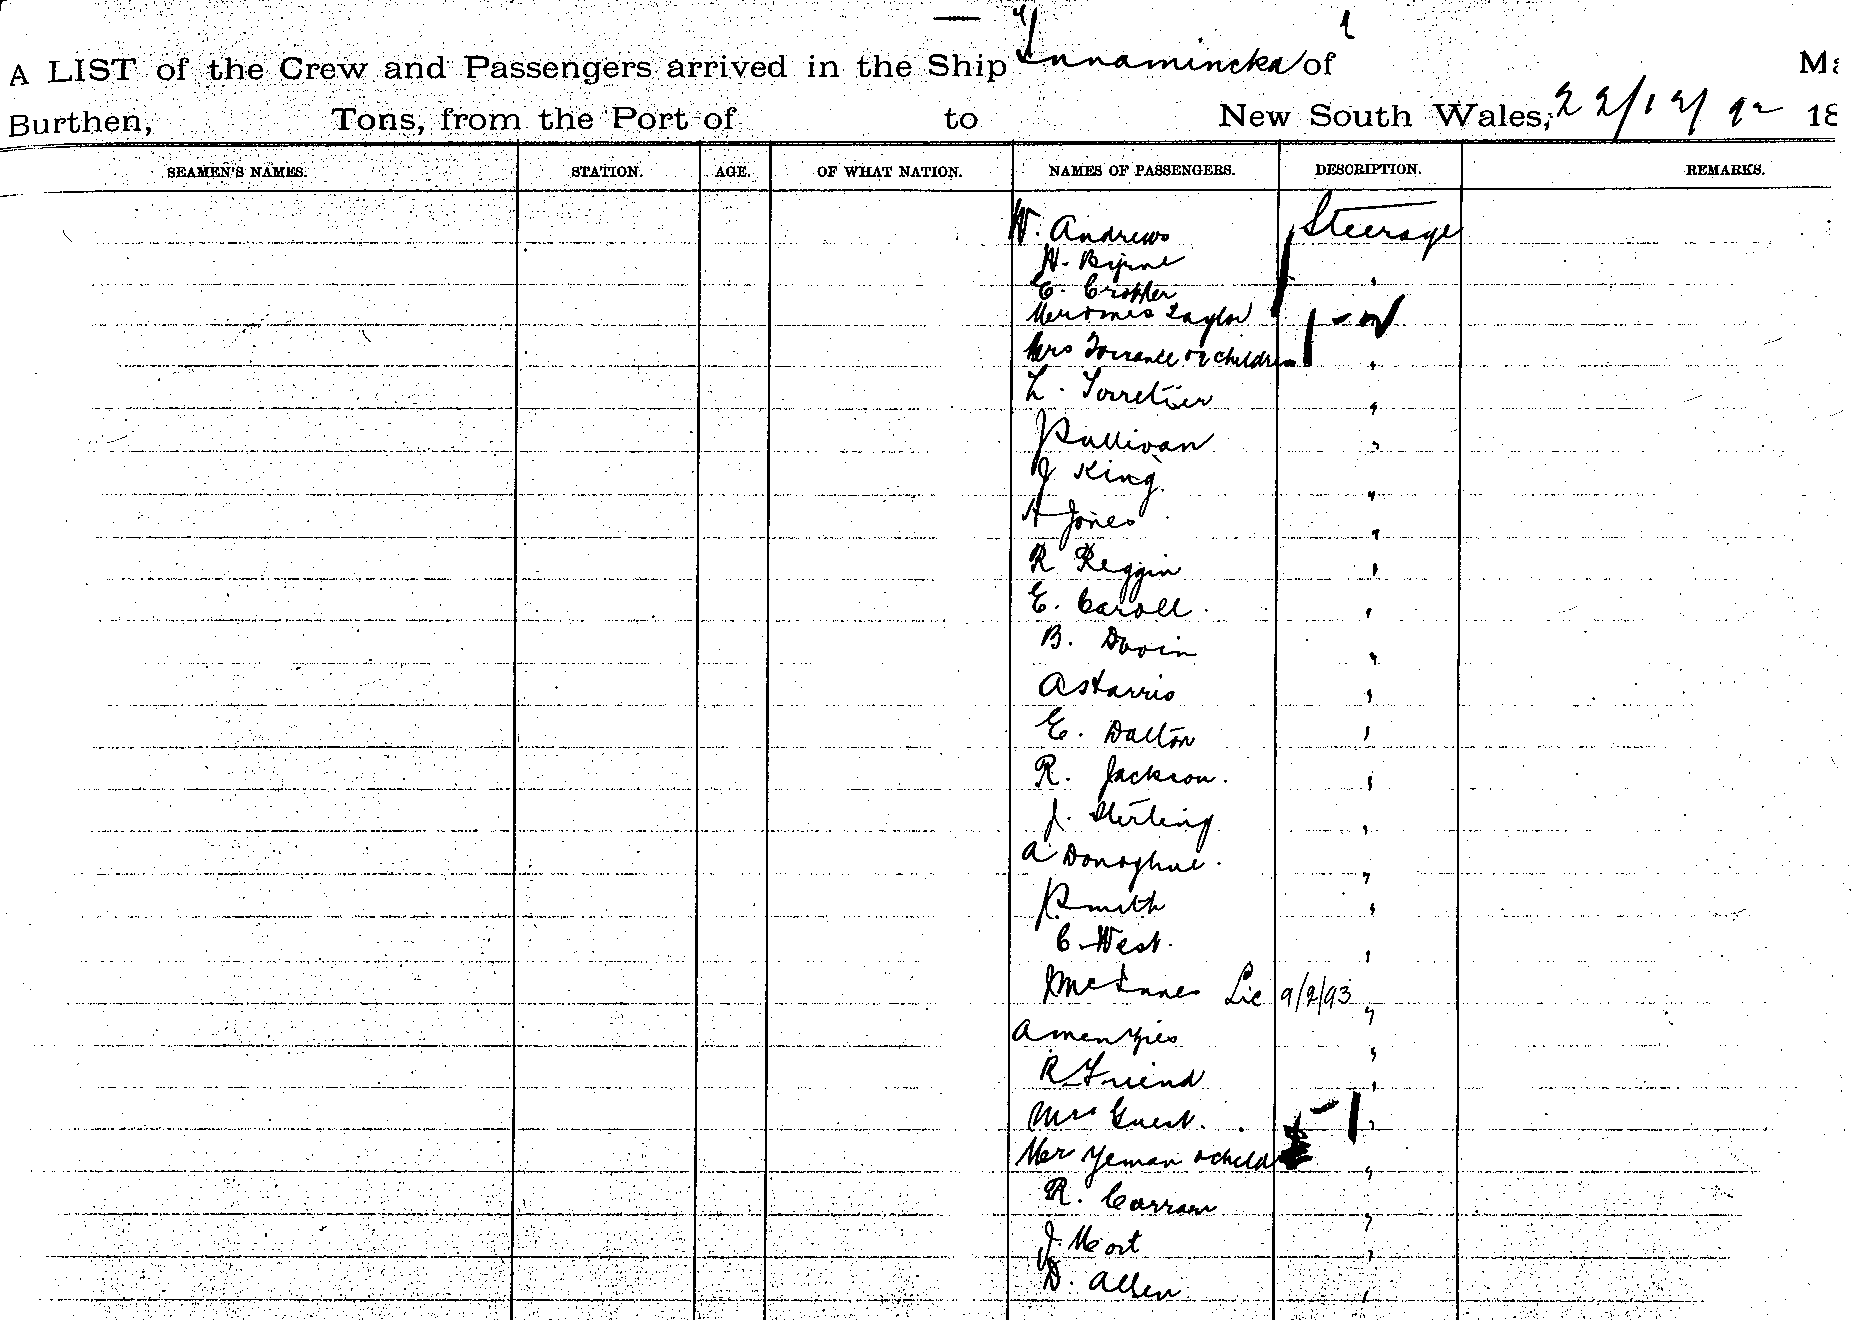 A LIST of the Crew and Passengers arrived in the Ship Innamincka of
Burthen, Tons, from the Port of to New South Wales, 22/12/92 18
SEAMEN'S NAMES. STATION. AGE. OF WHAT NATION. NAMES OF PASSENGERS. DESCRIPTION. REMARKS.
W. Andrews Steerage
H. Byrne "
E. Cropper
Mr & Mrs Taylor
Mrs Torrance & 2 children "
L. "
J Sullivan "
J King "
A Jones "
R Reggin "
E. Caroll "
B. "
A Harris "
E. Dalton "
R. Jackson "
J. Sterling "
A Donoghue "
J Smith "
C West "
J McInnes Lic 9/2/93 "
A Menzies "
R Friend "
Mrs Guest "
Mr Yeman & child "
R. Curran "
J. Mort "
D. Allen "